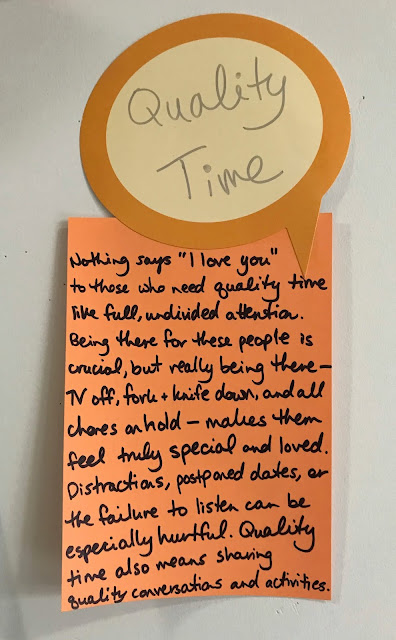 Quality
Time
Nothing says "I love you"
to those who need quality time
like full, undivided attention.
Being there for these people is
crucial, but really being there—
TV off, fork + knife down, and all
chores on hold — makes them
feel truly special and loved.
Distractions, postponed dates, or
the failure to listen can be
especially hurtful. Quality
time also means sharing
quality conversations and activities.